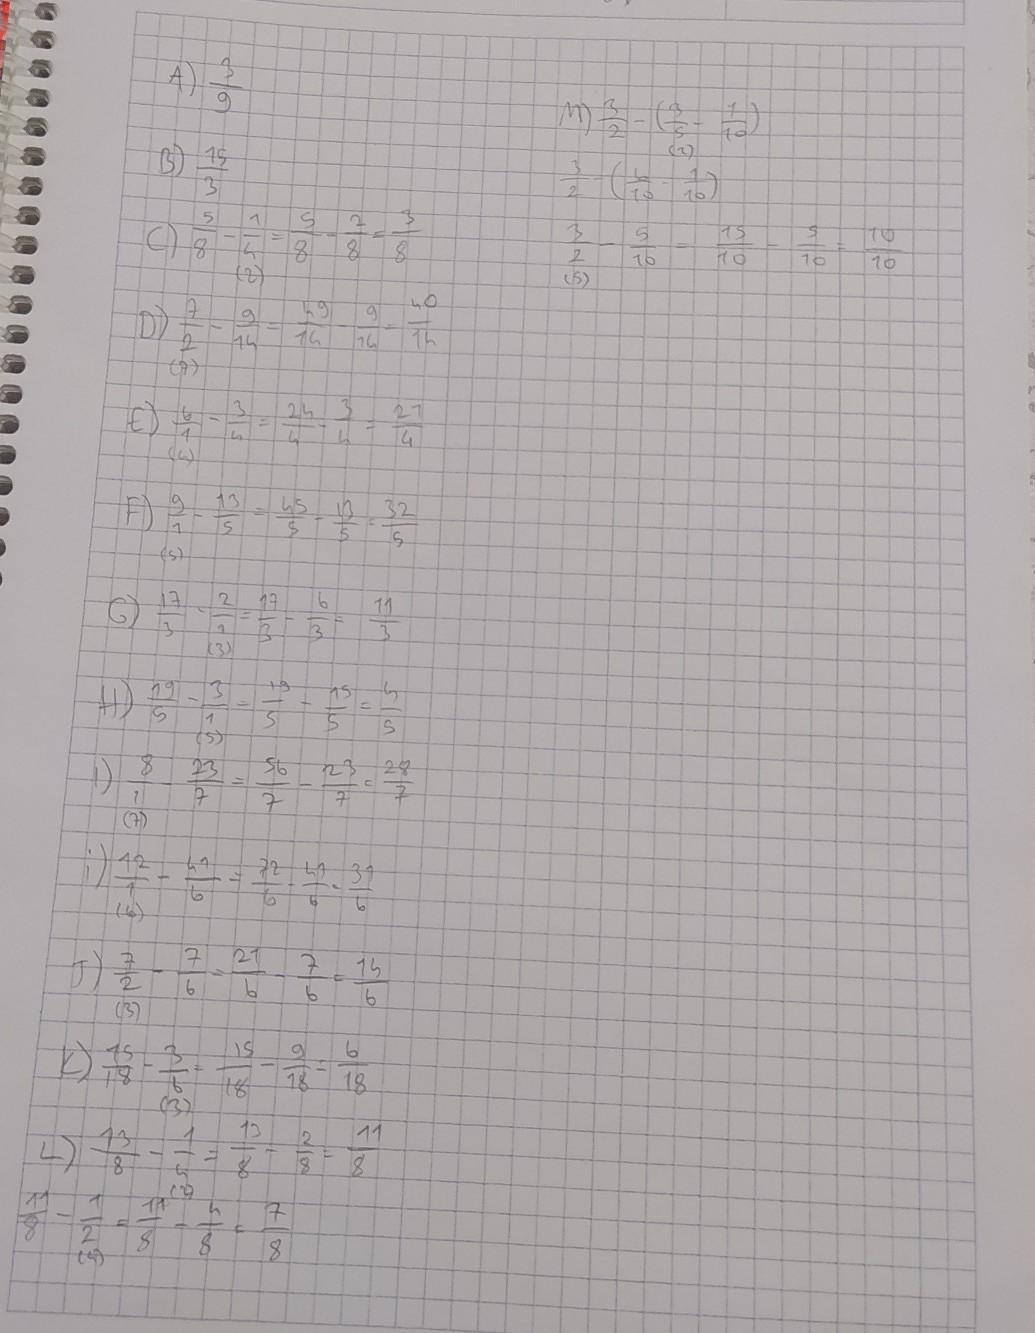 A) 3/9
B) 15/3
C) 5/8 - 1/4 = 5/8 - 2/8 = 3/8
(2)
D) 7/2 - 9/14 = 49/14 - 9/14 = 40/14
(7)
E) 6/1 - 3/4 = 24/4 - 3/4 = 21/4
(4)
F) 9/1 - 13/5 = 45/5 - 13/5 = 32/5
(5)
G) 17/3 - 2/1 = 17/3 - 6/3 = 11/3
(3)
H) 19/5 - 3/1 = 19/5 - 15/5 = 4/5
(5)
I) 8/1 - 23/7 = 56/7 - 23/7 = 28/7
(7)
i) 12/1 - 41/6 = 72/6 - 41/6 = 31/6
(6)
J) 7/2 - 7/6 = 21/6 - 7/6 = 14/6
(3)
K) 15/18 - 3/6 = 15/18 - 9/18 = 6/18
(3)
L) 13/8 - 1/4 = 13/8 - 2/8 = 11/8
(2)
11/8 - 1/2 = 11/8 - 4/8 = 7/8
(4)
M) 3/2 - (3/5 - 1/10)
(2)
3/2 - (6/10 - 1/10)
3/2 - 5/10 = 15/10 - 5/10 = 10/10
(5)